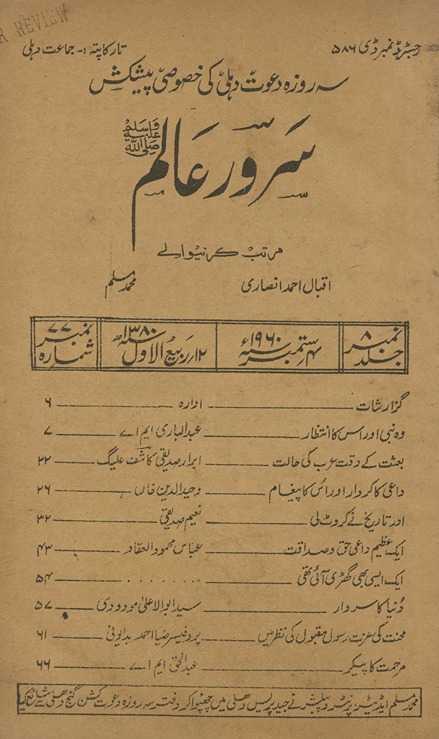 R REVIEW
رجسٹرڈ نمبر ڈی ۵۸۶ تار کا پتہ :- جماعت دہلی
سہ روزہ دعوت دہلی کی خصوصی پیشکش
سرور عالم صلی اللہ علیہ وسلم
مرتب کرنیوالے
اقبال احمد انصاری محمد مسلم
جلد نمبر ۸ ۴ ستمبر سنہ ۱۹۶۰ء ۱۲ ربیع الاول سنہ ۱۳۸۰ھ شمارہ نمبر ۷۷
گزارشات ادارہ ۶
وہ نبی اور اس کا انتظار عبدالباری ایم اے ۷
بعثت کے وقت عرب کی حالت ابرار صدیقی کاشف علیگ ۲۲
داعی کا کردار اور اس کا پیغام وحید الدین خاں ۲۶
اور تاریخ نے کروٹ لی نعیم صدیقی ۳۲
ایک عظیم داعی حق و صداقت عباس محمود العقاد ۴۳
ایک ایسی بھی گھڑی آئی تھی ........ ۵۴
دنیا کا سردار سید ابوالاعلیٰ مودودی ۵۷
محنت کی عزت رسول مقبول کی نظر میں پروفیسر ضیا احمد بدایونی ۶۱
مرحمت کا پیکر عبدالحق ایم اے ۶۶
محمد مسلم ایڈیٹر پرنٹر و پبلشر نے جید پریس دھلی میں چھپوا کر دفتر سہ روزہ دعوت کشن گنج دھلی سے شائع کیا